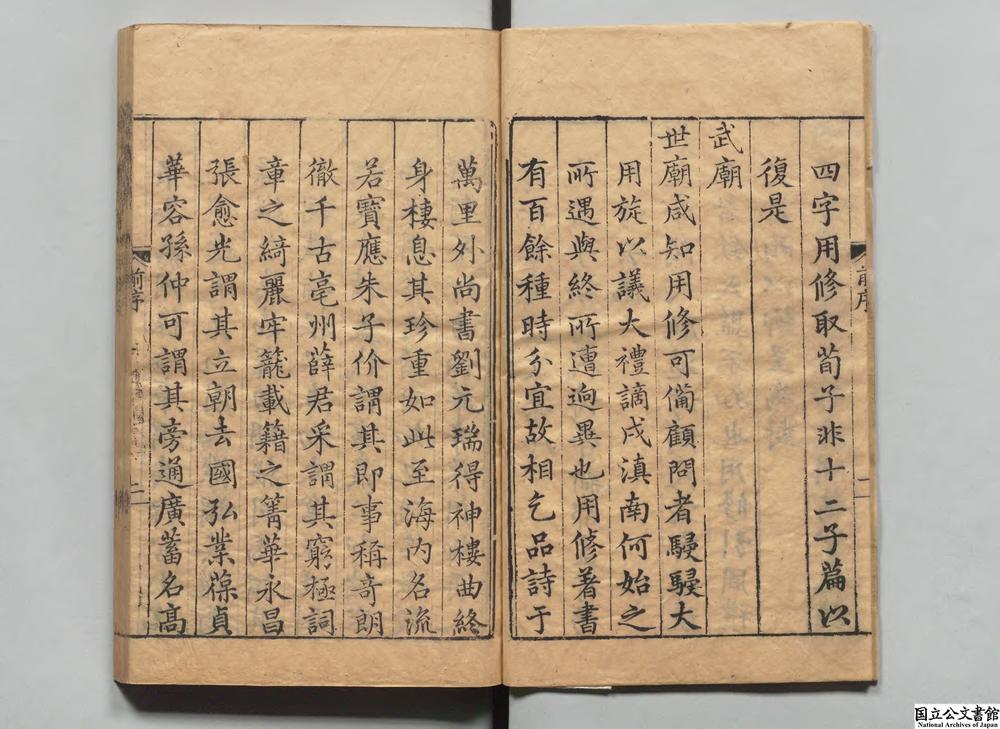 前序
二
四字用修取荀子非十二子篇以
復是
武廟
世廟咸知用修可備顧問者駸駸大
用旋以議大禮謫戍滇南何始之
所遇與終所遭逈異也用修著書
有百餘種時分宜故相乞品詩于
萬里外尚書劉元瑞得神樓曲終
身棲息其珍重如此至海内名流
若寶應朱子价謂其即事稱奇朗
徹千古亳州薛君采謂其窮極詞
章之綺麗牢籠載籍之箐華永昌
張愈光謂其立朝去國弘業葆貞
華容孫仲可謂其旁通廣蓄名高
前序
二
国立公文書館
National Archives of Japan